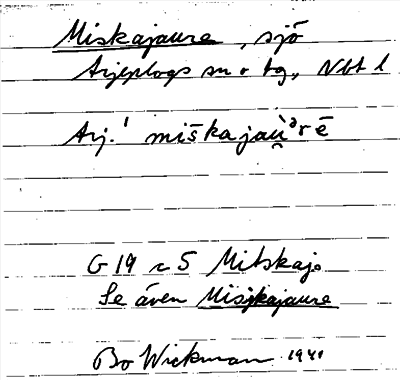 Miskajaure, sjö
Arjeplogs sn o tg, Nbt l
Arj.¹ miškajau̯ᵊrē
G 19 c 5 Mitskaj.
Se även Misjkajaure
Bo Wickman 1941